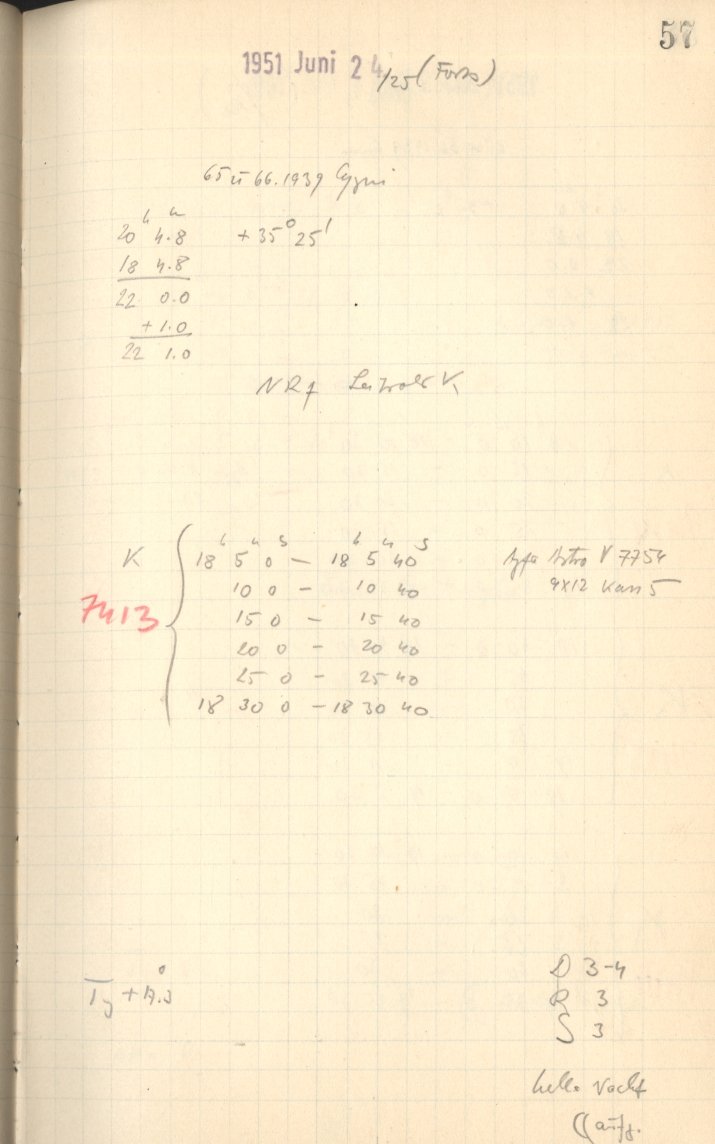 57
1951 Juni 24/25 (Forts)
65 u 66.1939 Cygni
20 h 4.8 m +35° 25'
18 4.8
22 0.0
+1.0
22 1.0
NR
K 18 h 5 m 0 s – 18 h 5 m 40 s Agfa Astro V 7754
10 0 – 10 40 9x12 Kass 5
7413 15 0 – 15 40
20 0 – 20 40
25 0 – 25 40
18 30 0 – 18 30 40
D 3-4
R 3
S 3
helle Nacht
aufg.